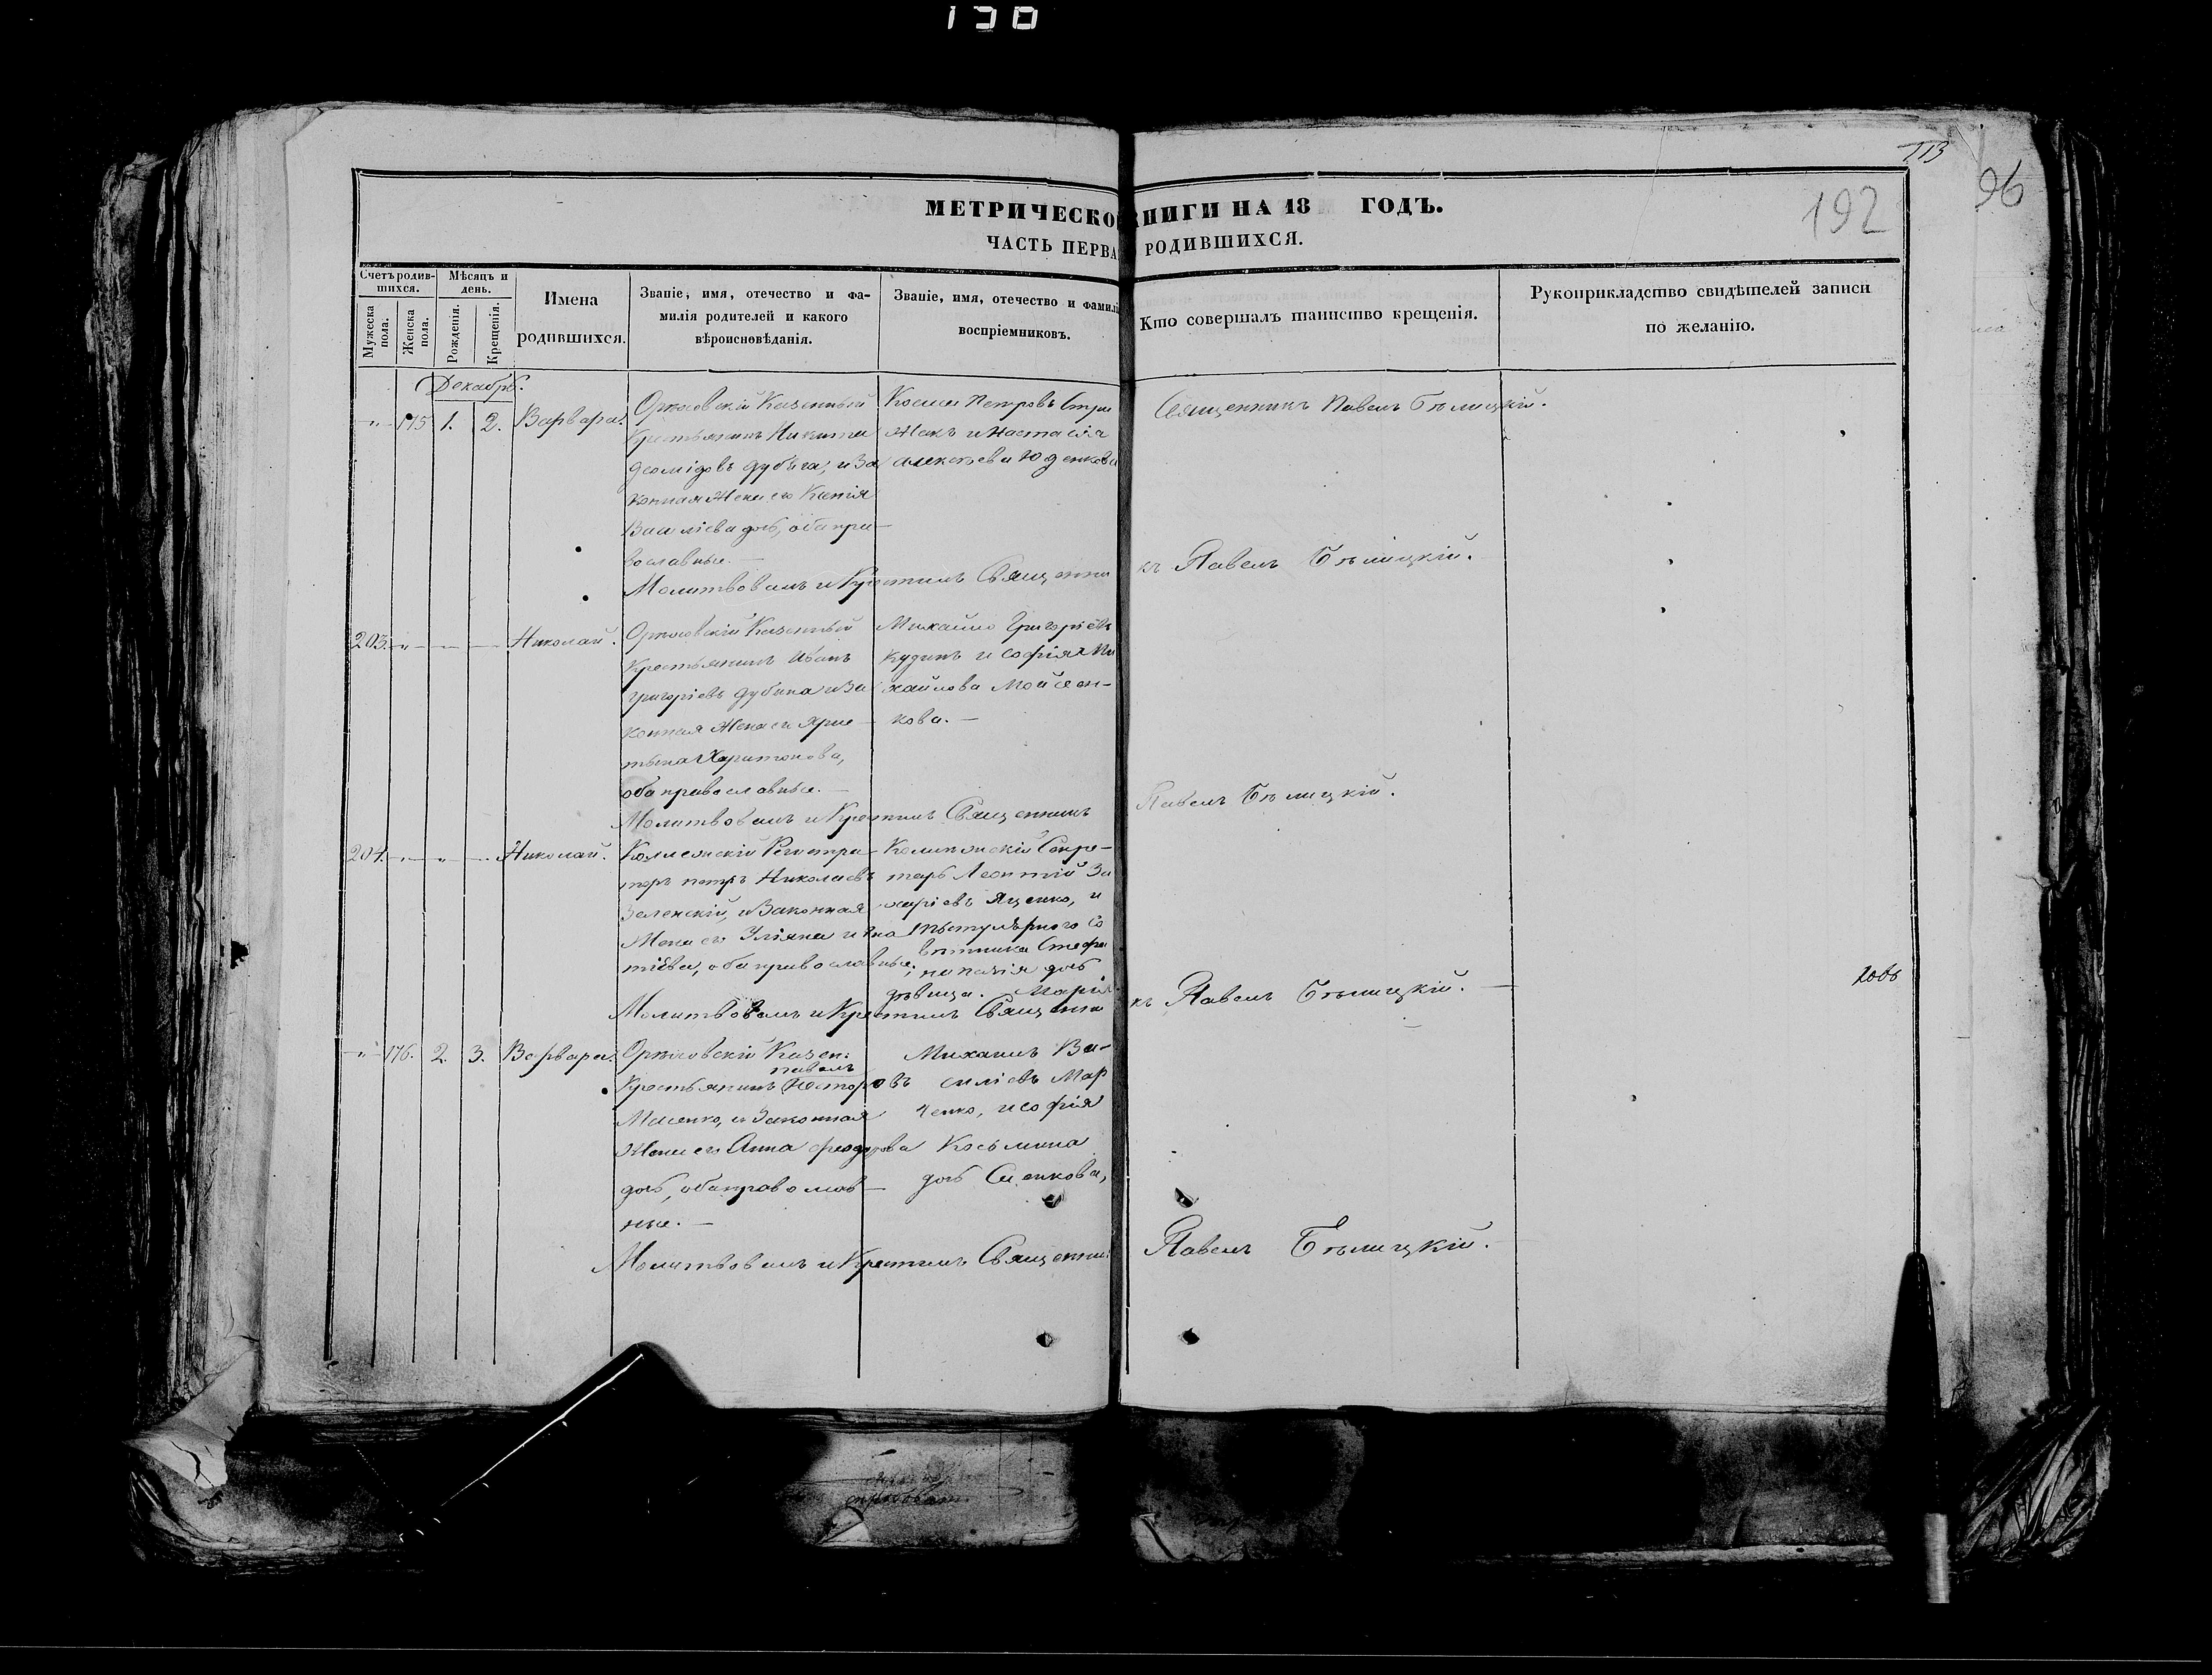 113
96
192
МЕТРИЧЕСКО НИГИ НА 18 ГОДЪ.
ЧАСТЬ ПЕРВА РОДИВШИХСЯ.
Счетъ родив-
шихся.
Мужеска пола.
Женска пола.
Мѣсяцъ и день.
Рожденія.
Крещенія.
Имена
родившихся.
Званіе, имя, отечество и фа-
милія родителей и какого
вѣроисповѣданія.
Званіе, имя, отечество и фамилі
воспріемниковъ.
Кто совершалъ таинство крещенія.
Рукоприкладство свидѣтелей записи
по желанію.
Декабрь.
175 1. 2. Варвара.
Казенный
Крестьянинъ Никита
Дубига, и за
конная Жена его Ксенія
Василіева дочь, оба пра-
вославные.
Косма Петровъ Стри
жакъ и Настасія
Алексѣева Юденкова
Священникъ Павелъ Бѣлицкій.
Молитвовалъ и Крестилъ Священни
къ Павелъ Бѣлицкій.
203. Николай.
Казенный
Крестьянинъ Иванъ
Григоріевъ Дубина и за
конная Жена его
Харитонова,
оба православные.
Михайло Григоріевъ
Кудинъ и Софія Ми
хайлова Мойсеен-
кова.
Молитвовалъ и Крестилъ Священникъ
Павелъ Бѣлицкій.
204. Николай.
Коллежскій Регистра-
торъ Петръ Николаевъ
Зеленскій, и Законная
Жена его Уліяна
оба православные;
Секре-
тарь Леонтій За
харіевъ Яценко, и
Со
вѣтника
дочь
дѣвица. Марія
Молитвовалъ и Крестилъ Священни
къ Павелъ Бѣлицкій.
176. 2. 3. Варвара.
Казен:
Павелъ
Крестьянинъ Несторовъ
и Законная
Жена его Анна Феодорова
дочь, оба православ-
ные.
Михаилъ Ва-
силіевъ Мар
ченко, и Софія
Косьмина
дочь
Молитвовалъ и Крестилъ Священни
Павелъ Бѣлицкій.